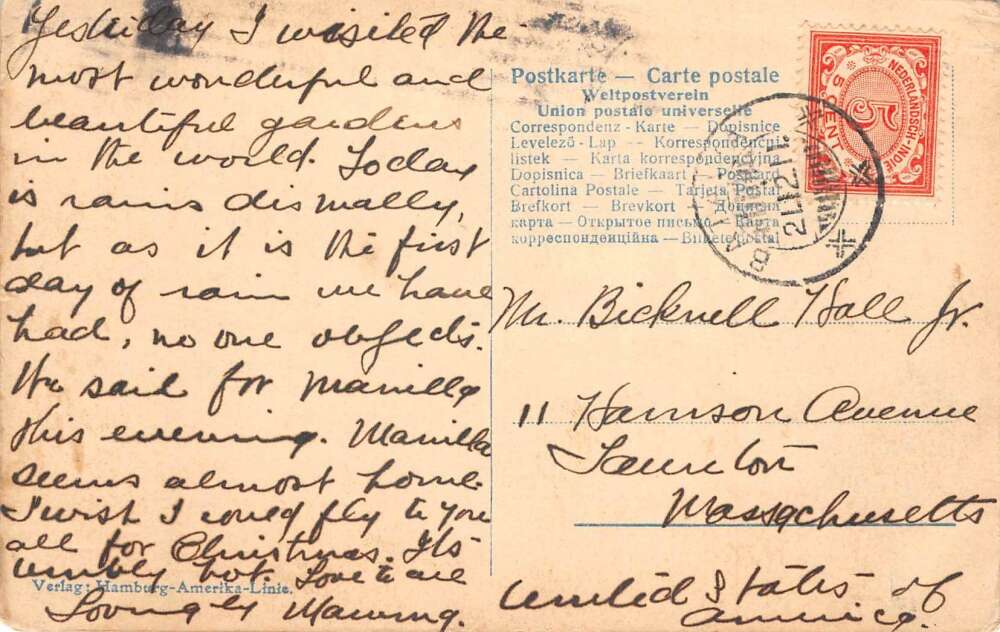 Yesterday I visited the
most wonderful and
beautiful gardens
in the world. Today
is rains dismally,
but as it is the first
day of rain we have
had, no one objects.
We sail for Manilla
this evening. Manilla
seems almost home.
I wish I could fly to you
all for Christmas. Its
hot. Love to all
Lovingly
Verlag: Hamburg-Amerika-Linie.
Postkarte — Carte postale
Weltpostverein
Union postale universelle
Correspondenz-Karte — Dopisnice
Levelező-Lap — Korrespondencuí
listek — Karta korrespondencyjna
Dopisnica — Briefkaart — Postcard
Cartolina Postale — Tarjeta Postal
Brefkort — Brevkort — Дописна
карта — Открытое письмо — Карта
корреспонденційна — Bilhete postal
NEDERLANDSCH-INDIE
5
CENT
Mr. Bicknell Hall Jr.
11 Harrison Avenue
Taunton
Massachusetts
United States of
America.